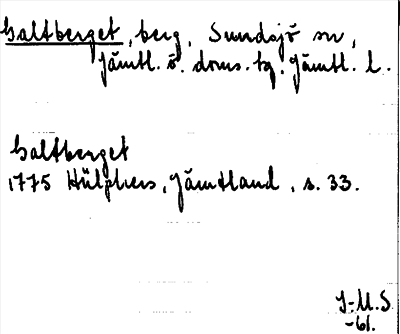 Galtberget, berg, Sundsjö sn,
Jämtl. ö. doms. tg. Jämtl. l.
Galtberget
1775 Hülphers, Jämtland, s. 33.
J-M.S.
-61.